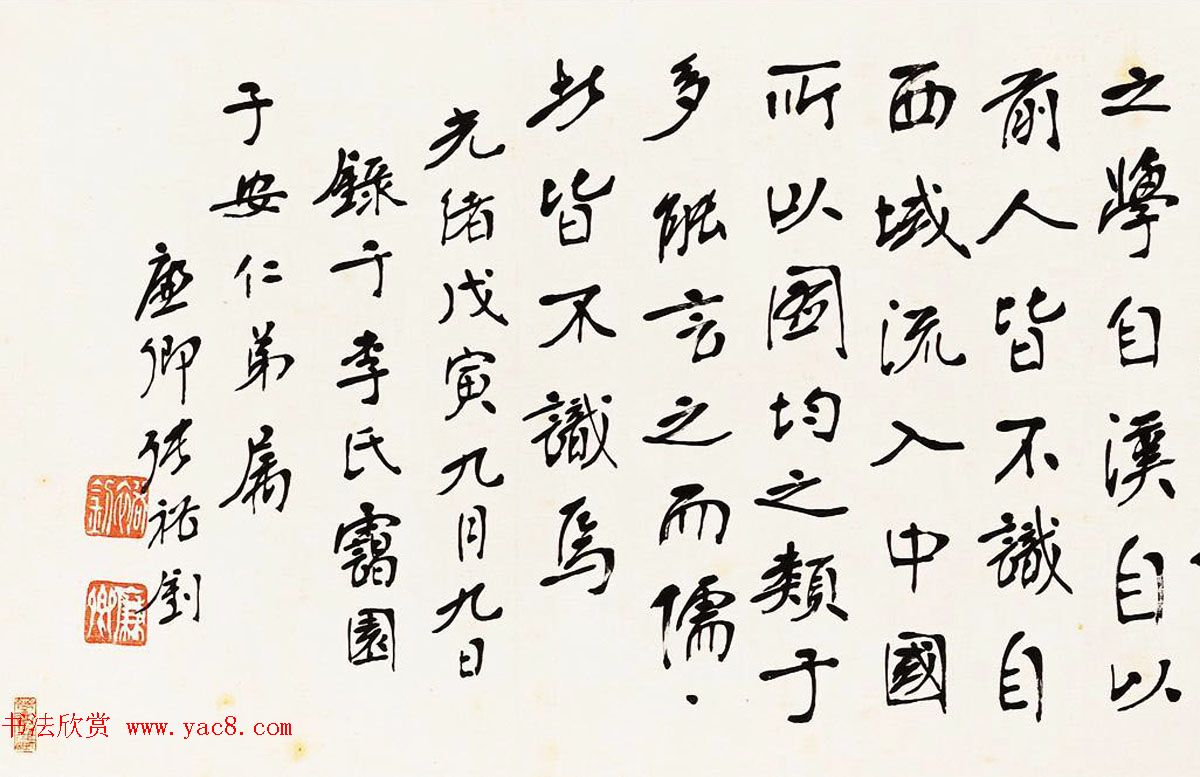 之學自漢自以
前人皆不識自
西域流入中國
所以圖均之類于
多能言之而儒
此皆不識焉
光緒戊寅九月九日
錄于李氏靄園
子安仁弟屬
廉卿張裕釗
裕釗
廉卿
书法欣赏 www.yac8.com